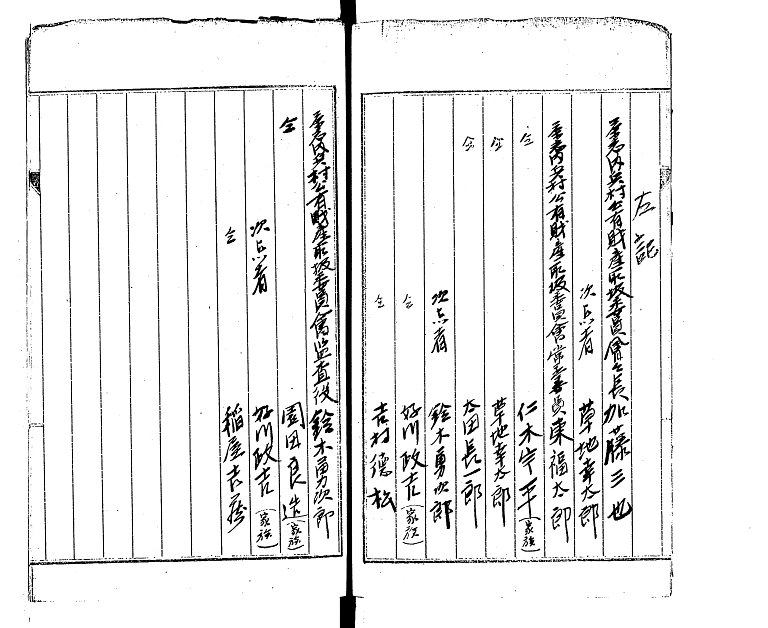 左記
委恵内兵村公有財産取扱委員会々長 加藤三也
次点者 草地幸太郎
委恵内兵村公有財産取扱委員会常委員 東福太郎
仝 仁木宇平(家族)
仝 草地幸太郎
仝 太田長一郎
次点者 鈴木勇次郎
仝 好川政吉(家族)
仝 吉村徳松
委恵内兵村公有財産取扱委員会监查役 鈴木勇次郎
仝 園田良造(家族)
次点者 好川政吉(家族)
仝 稲屋吉蔵